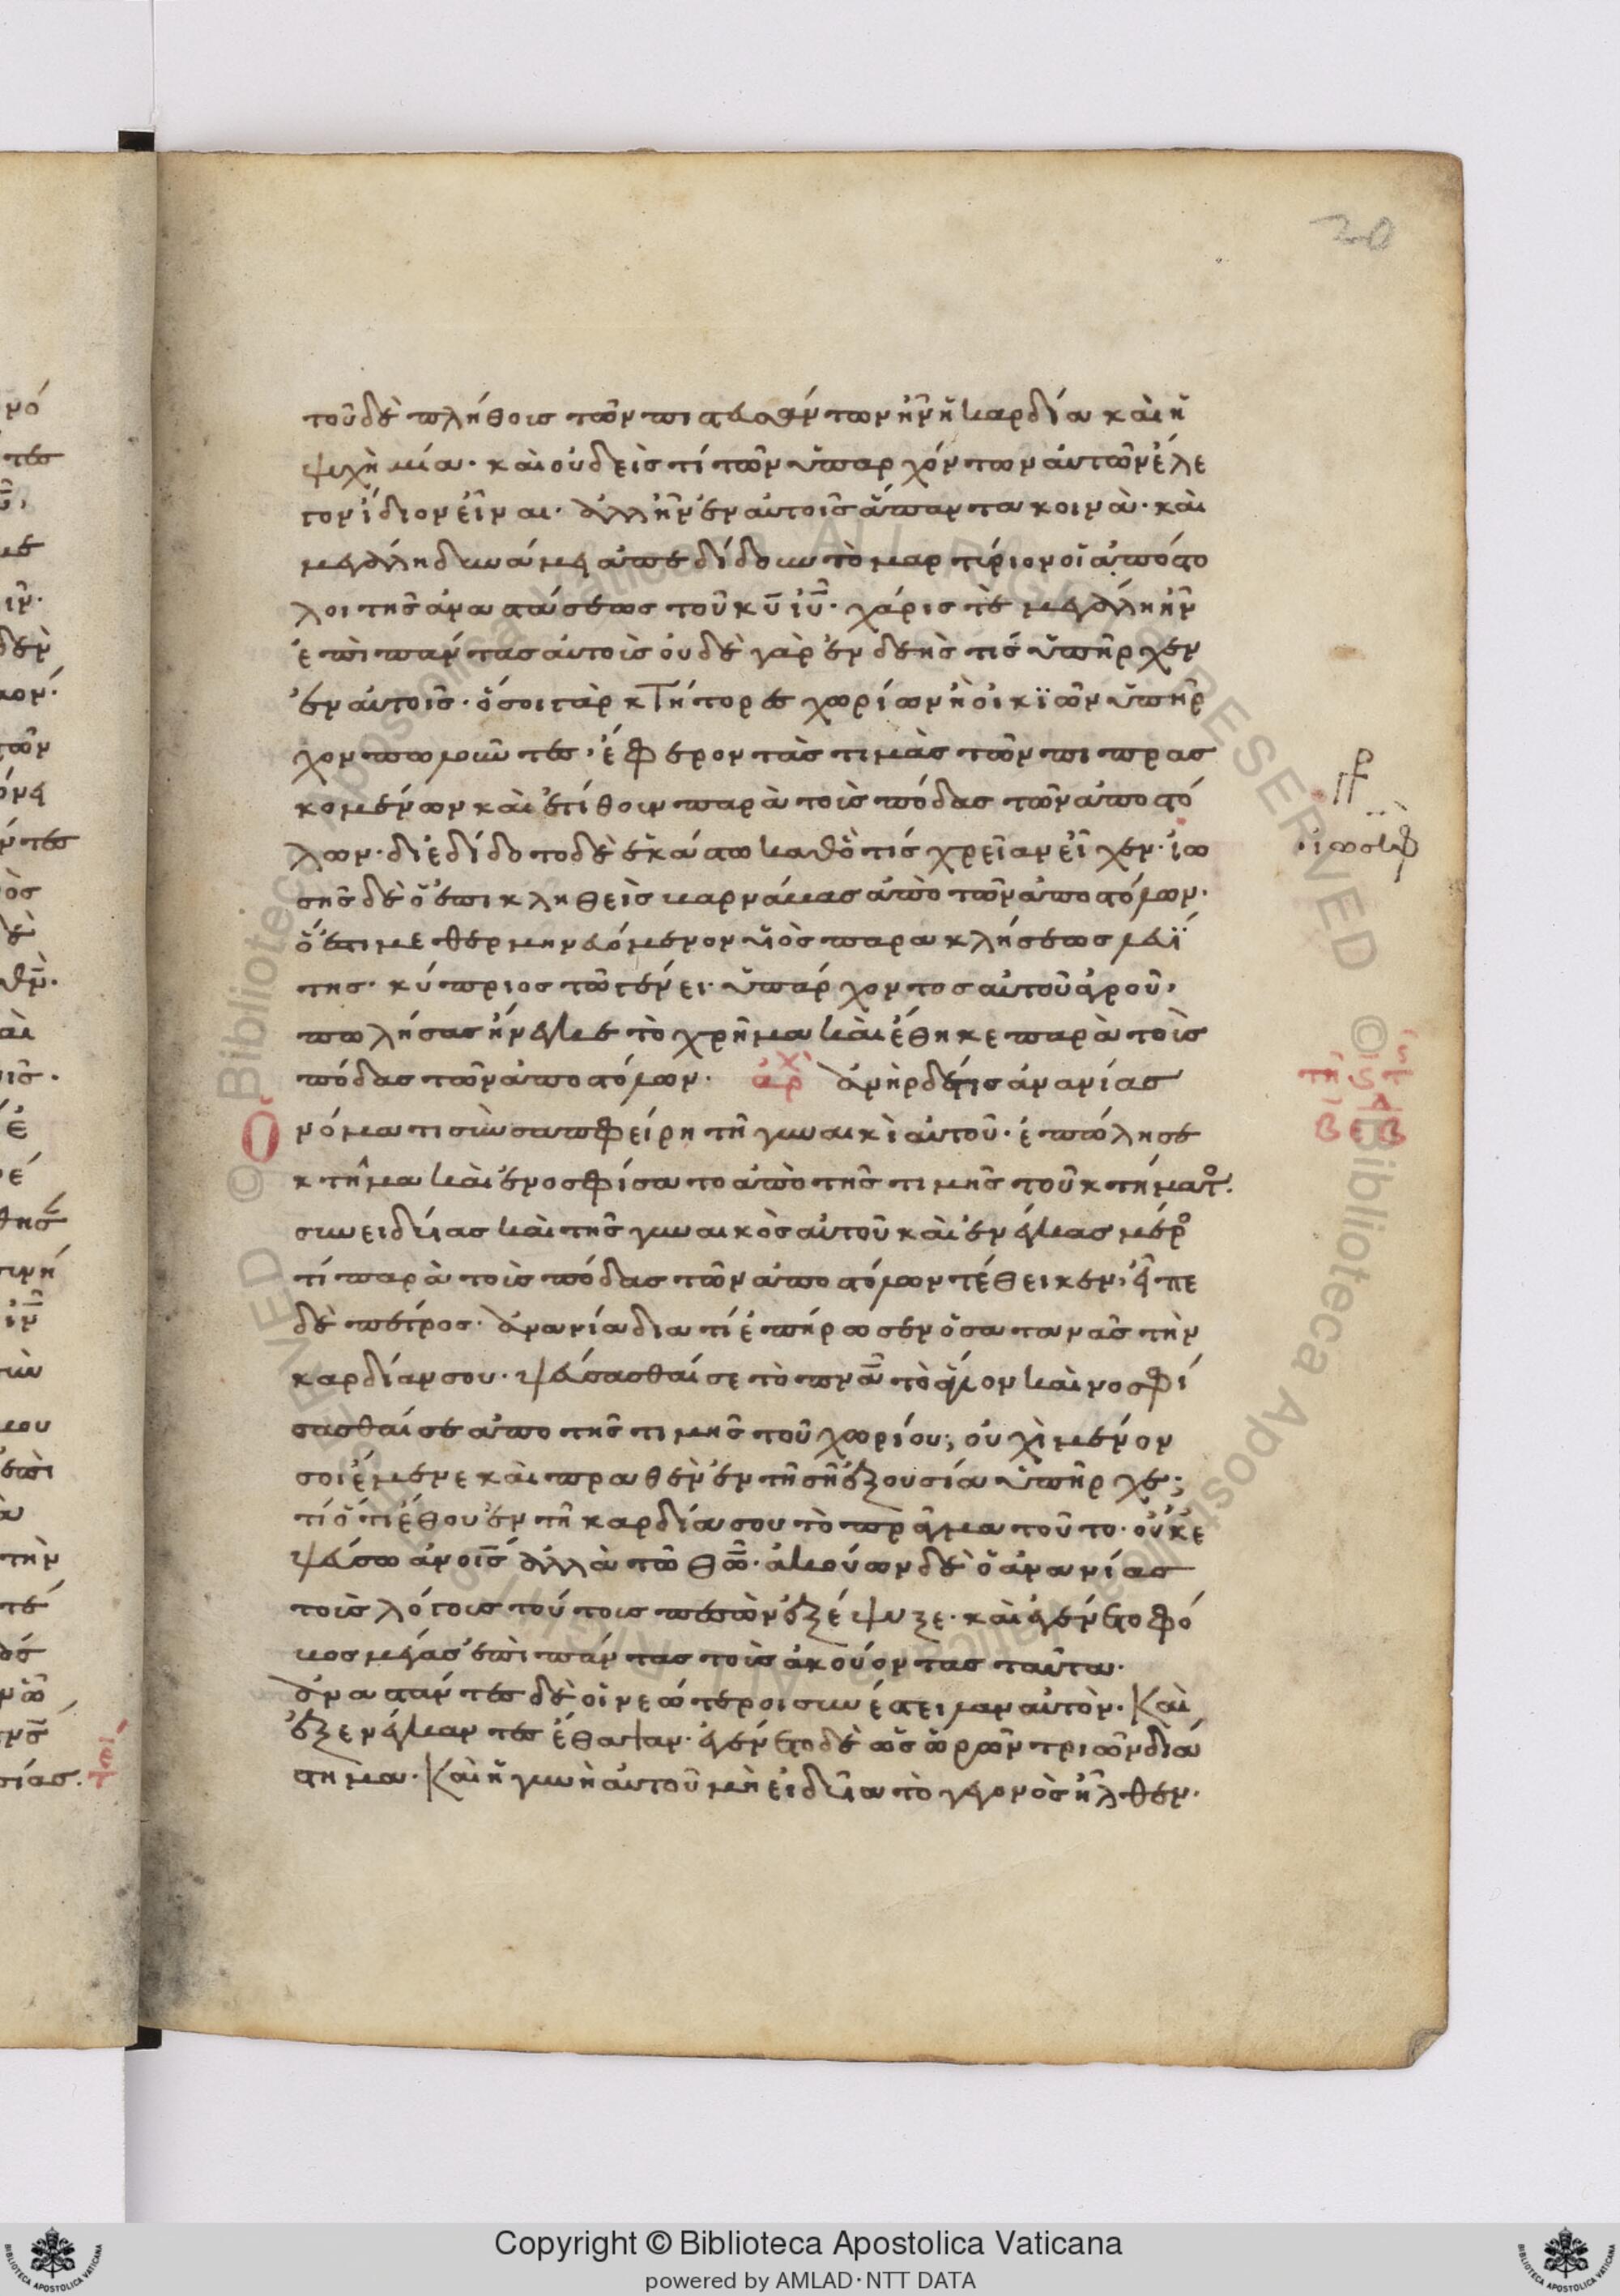 20
τοῦ δὲ πλήθοις τῶν πιστευσάντων ἦν ἡ καρδία καὶ ἡ
ψυχὴ μία· καὶ οὐδεὶς τί τῶν ὑπαρχόντων αὐτῶν ἔλε
γον ἴδιον εἶναι· ἀλλ ἦν ἐν αὐτοῖς ἅπαντα κοινὰ· καὶ
μεγάλη δυνάμει ἀπεδίδουν τὸ μαρτίριον οἱ ἀπόστο
λοι τῆς ἀναστάσεως τοῦ κ̅υ̅ ι̅υ̅· χάρις τὲ μεγάλη ἦν
ἐπὶ πάντας αὐτοὶς οὐδὲ γὰρ ἐνδεής τίς ὑπῆρχεν
ἐν αὐτοῖς· ὅσοι γὰρ κτήτορες χωρίων ἢ οἰκϊῶν ὑπῆρ
χον πωλοῦντες, ἔφερον τὰς τιμὰς τῶν πιπρασ
κομένων καὶ ἐτίθουν παρὰ τοὶς πόδας τῶν ἀποστό
λων· διεδίδοτο δὲ ἑκάστω καθό τίς χρεῖαν εἶχεν· ἰω
σῆς δὲ ὁ ἐπικληθεὶς βαρνάβας ἀπὸ τῶν ἀποστόλων·
ὅ ἐστι μεθερμηνευόμενον υἱὸς παρακλήσεως λευΐ
της· κύπριος τῶ γένει· ὑπάρχοντος αὐτοῦ ἀγροῦ,
πωλήσας ἤνεγκε τὸ χρῆμα καὶ ἔθηκε παρὰ τοὶς
πόδας τῶν ἀποστόλων· ἀρχ ἀνὴρ δέ τις ἀνανίας
Ὀνόματι σὺν σαπφείρη τῆ γυναικὶ αὐτοῦ· ἐπώλησε
κτῆμα καὶ ἐνοσφίσατο ἀπὸ τῆς τιμῆς τοῦ κτήματο·
συνειδυίας καὶ τῆς γυναικὸς αὐτοῦ καὶ ἐνέγκας μέρο
τί παρὰ τοὶς πόδας τῶν ἀποστόλων τέθεικεν, εἶπε
δὲ πέτρος· ἀνανία διατί ἐπήρωσεν ὁ σατανᾶς τὴν
καρδίαν σου· ψεύσασθαί σε τὸ π̅ν̅α̅ τὸ ἅγιον καὶ νοσφί
σασθαί σε ἀπο τῆς τιμῆς τοῦ χωρίου; οὐχὶ μένον
σοὶ ἔμενε καὶ πραθὲν ἐν τῆ σῆ ἐξουσία ὑπῆρχε;
τί ὅτι ἔθου ἐν τῆ καρδία σου τὸ πρᾶγμα τοῦτο· οὐκ ἐ
ψεύσω ἀνοις ἀλλὰ τῶ θ̅ω̅· ἀκούων δὲ ὁ ἀνανίας
τοὶς λόγους τούτους πεσὼν ἐξέψυξε· καὶ ἐγένετο φό
βος μέγας ἐπὶ πάντας τοὶς ἀκούοντας ταῦτα·
ἀναστάντες δὲ οἱ νεώτεροι συνέστειλαν αὐτὸν· Καὶ
ἐξενέγκαντες ἔθαψαν· ἐγένετο δὲ ὡς ὡρῶν τριῶν διά
στημα· Καὶ ἡ γυνὴ αὐτοῦ μὴ εἰδυῖα τὸ γεγονὸς ἦλθεν·
Copyright © Biblioteca Apostolica Vaticana
powered by AMLAD·NTT DATA